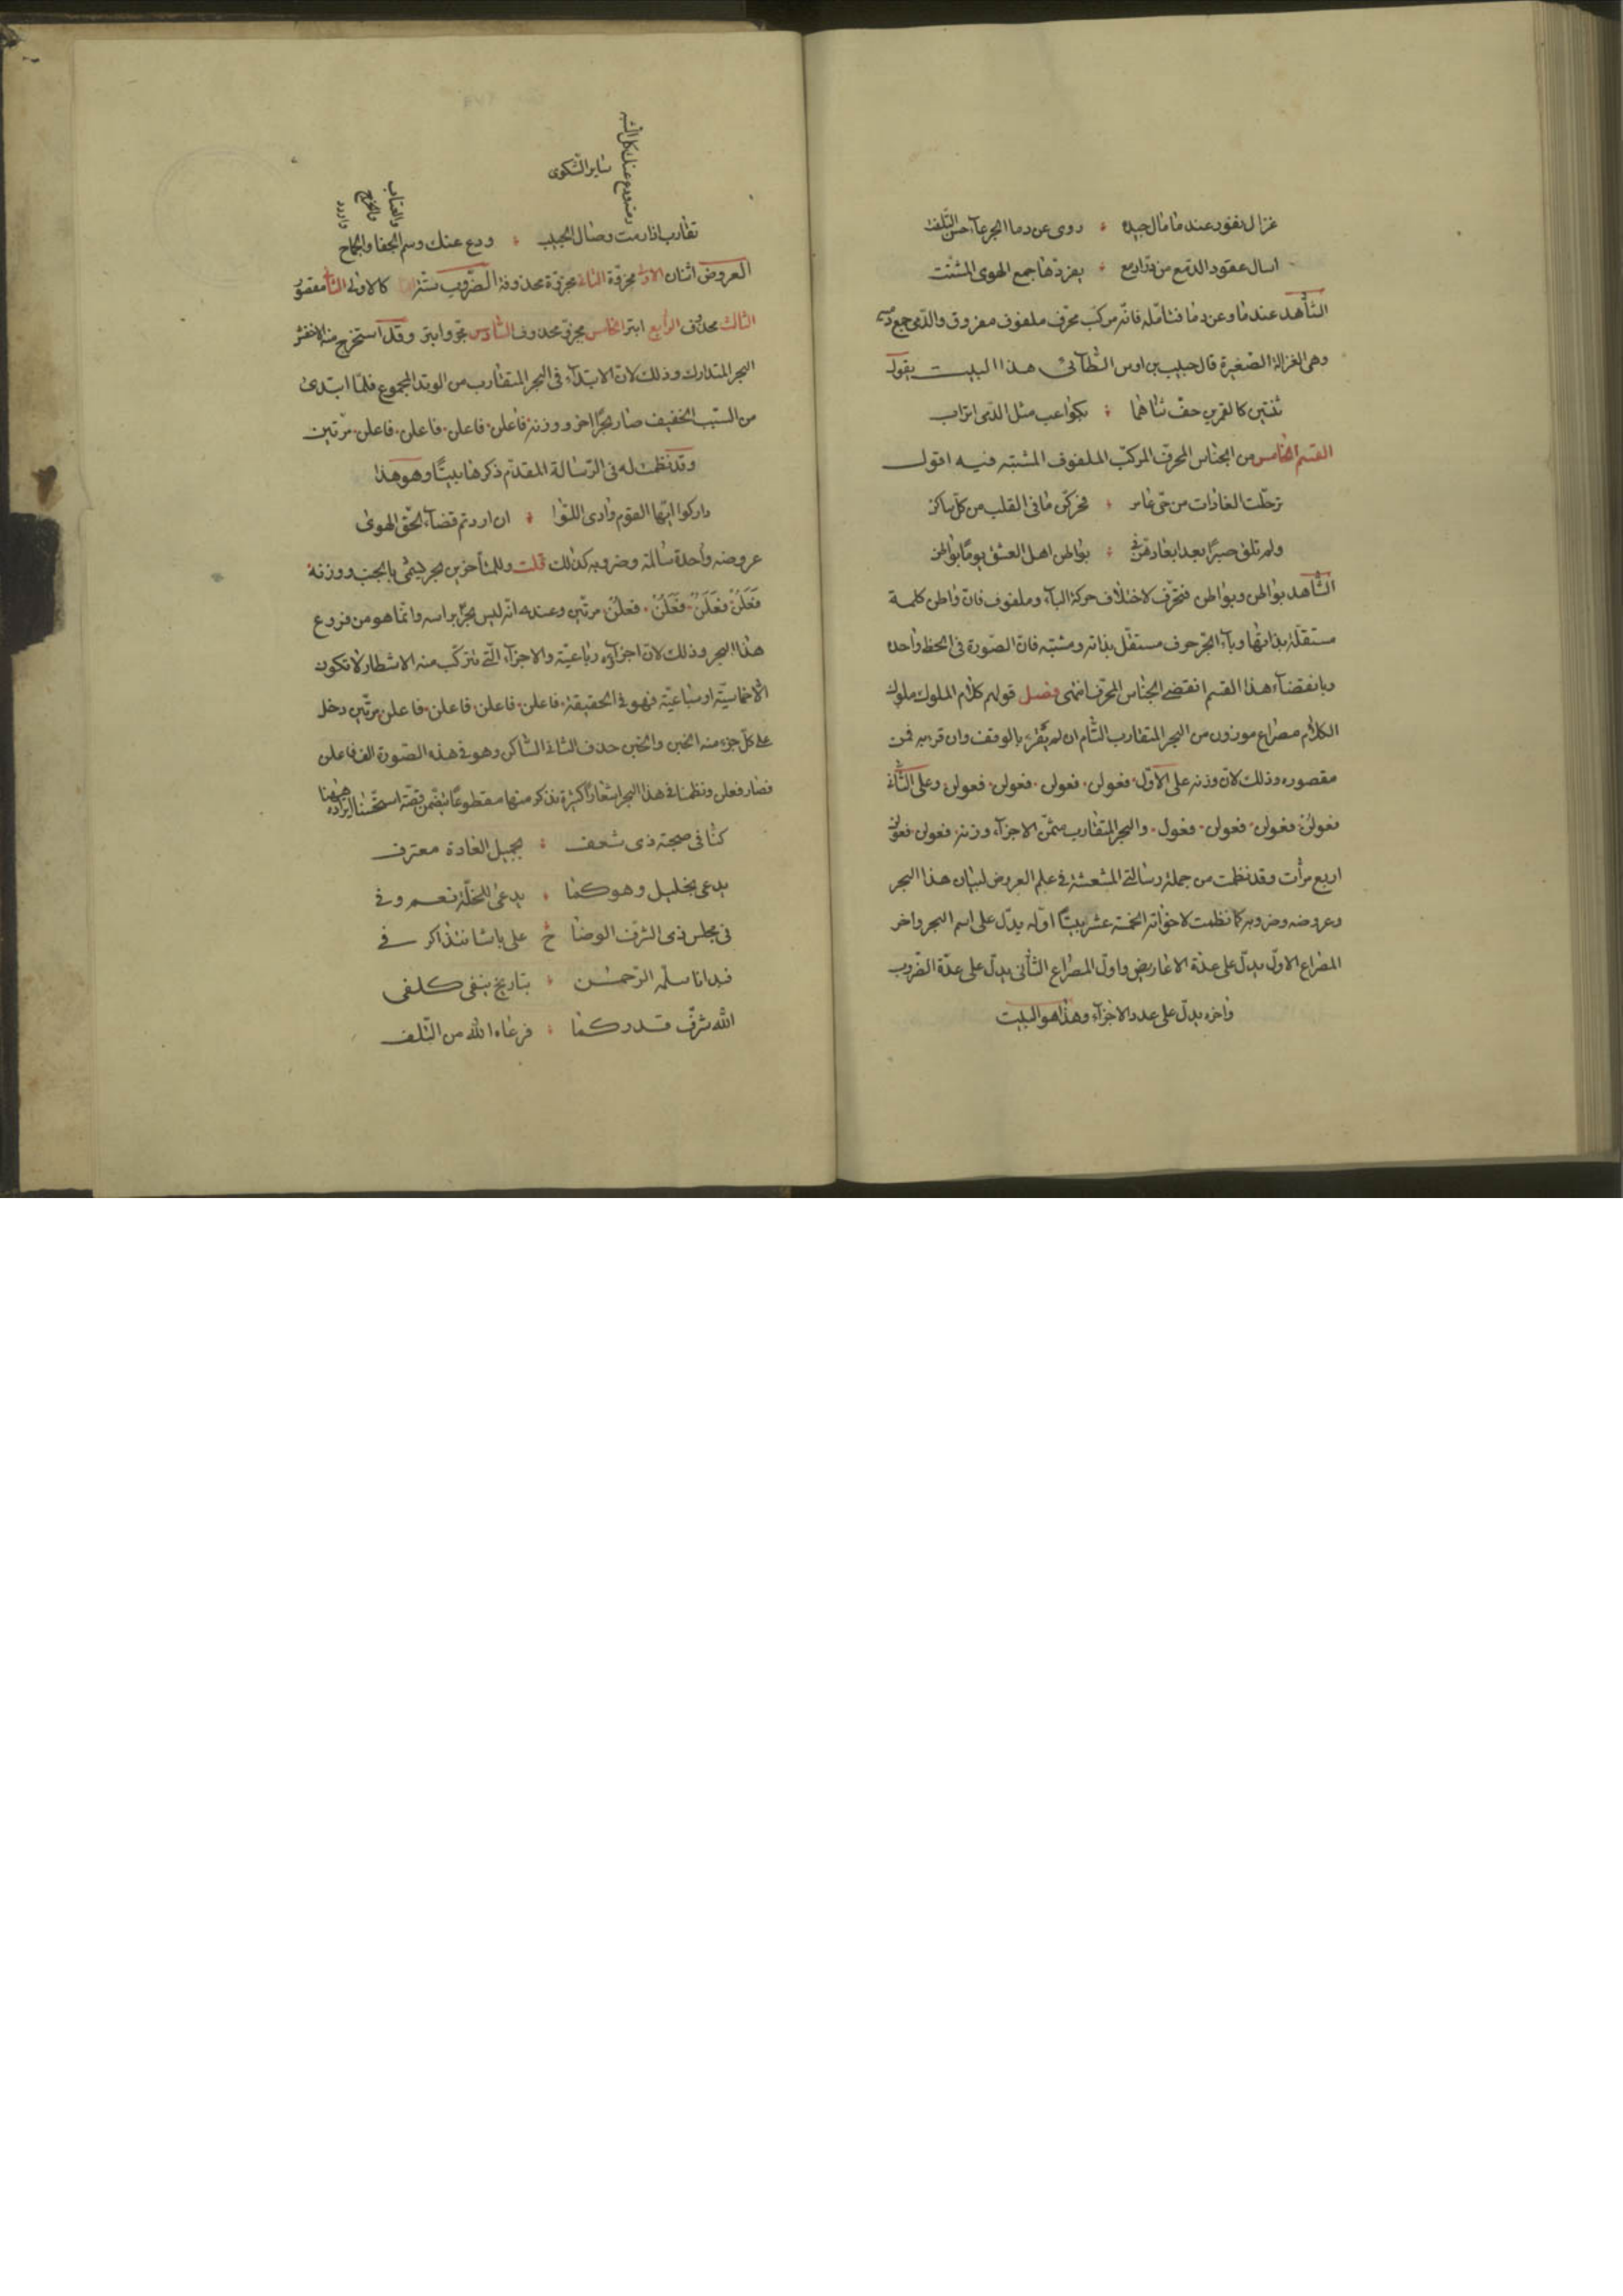 غزال نفور عند ما مال جيده ؞ روى عن دما الجرعاء حسن التلفت
اسال عقود الدمع من مدامع ؞ بفردها جمع الهوى المشتت
الشاهد عند ما وعن دما فتأمله فانه مركب محرف ملفوف مفروق والدمى جمع دمية
وهى الغزالة الصغيرة قال حبيب بن اوس الطآئى هذا البيت يقول
ثنتين كالقمرين حف سناهما ؞ بكواعب مثل الدمى اتراب
القسم الخامس من الجناس المحرف المركب الملفوف المشتبه فيه اقول
ترحلت الغادات من حى عامر ؞ فحركن ما فى القلب من كل ساكن
ولم تلق صبرا بعد ابعادهن فى ؞ بواطن اهل العشق يوما بواطن
الشاهد بواطن وبواطن فتحرف لاختلاف حركة البآء وملفوف فان واطن كلمة
مستقلة بذاتها وبآء الجر حرف مستقل بذاته ومشتبه فان الصورة فى الخط واحده
وبانقضآء هذا القسم انقضى الجناس المحرف انتهى فصل قولهم كلام الملوك ملوك
الكلام مصراع موزون من البحر المتقارب التام ان لم يقرء بالوقف وان قرء به فمن
مقصوره وذلك لان وزنه على الاول فعولن ٠ فعولن ٠ فعولن ٠ فعولن وعلى الثانى
فعولن ٠ فعولن ٠ فعولن ٠ فعول ٠ والبحر المتقارب مثمن الاجزآء وزنه فعولن فعولن
اربع مرات وقد نظمت من جملة رسالتى المشعشة فى علم العروض لبيان هذا البحر
وعروضه وضروبه كما نظمت لاخواته الخمسة عشر بيتا اوله يدل على اسم البحر واخر
المصراع الاول يدل على عدة الاعاريض واول المصراع الثانى يدل على عدة الضروب
واخره يدل على عدد الاجزآء وهذا هو البيت
ساير الشكوى
تقارب اذا رمت وصال الحبيب ؞ ودع عنك وسم الجفا والجماح
العروض اثنان الاولى مجزوة الثانية مجزوة محذوفة الضروب ستة كالاولى الثانى مقصور
الثالث محذوف الرابع ابتر الخامس مجزو محذوف السادس مجزو ابتر وقد استخرج منه الاخفش
البحر المتدارك وذلك لان الابتدآء فى البحر المتقارب من الوتد المجموع فلما ابتدئ
من السبب الخفيف صار بحرا اخر ووزنه فاعلن ٠ فاعلن ٠ فاعلن ٠ فاعلن ٠ مرتين
وقد نظمت له فى الرسالة المقدم ذكرها بيتا وهو هذا
داركوا ايها القوم وادى اللوا ؞ ان اردتم قضآء لحق الهوى
عروضه واحدة سالمة وضروبه كذلك قلت وللمتأخرين بحر يسمى بالخبب ووزنه
فَعَلَنْ فَعَلَنْ ٠ فَعَلَنْ ٠ فَعَلَنْ مرتين وعنده انه ليس بحرا براسه وانما هو من فروع
هذا البحر وذلك لان اجزآؤه رباعية والاجزآء التى تتركب منه الاشطار لا تكون
الا خماسية او سباعية فهو فى الحقيقة ٠ فاعلن ٠ فاعلن ٠ فاعلن ٠ فاعلن مرتين دخل
على كل جزء منه الخبن والخبن حذف الثانى الساكن وهو فى هذه الصورة الف فاعلن
فصار فعلن ونظمنا فى هذا البحر اشعارا كثيرة نذكر منها مقطوعا يتضمن قصة استحسنا ايراده ههنا
كنا فى صحبة ذى شعف ؞ بجميل الغادة معترف
يدعى بخليل وهو كما ؞ يدعى للخلة نعم وفى
فى مجلس ذى الشرف الوضا ح على باشا نتذاكر فى
فبدانا سلمه الرحمن ؞ بتاريخ ينفى كلفى
الله شرف قدر كما ؞ فرعاه الله من التلف